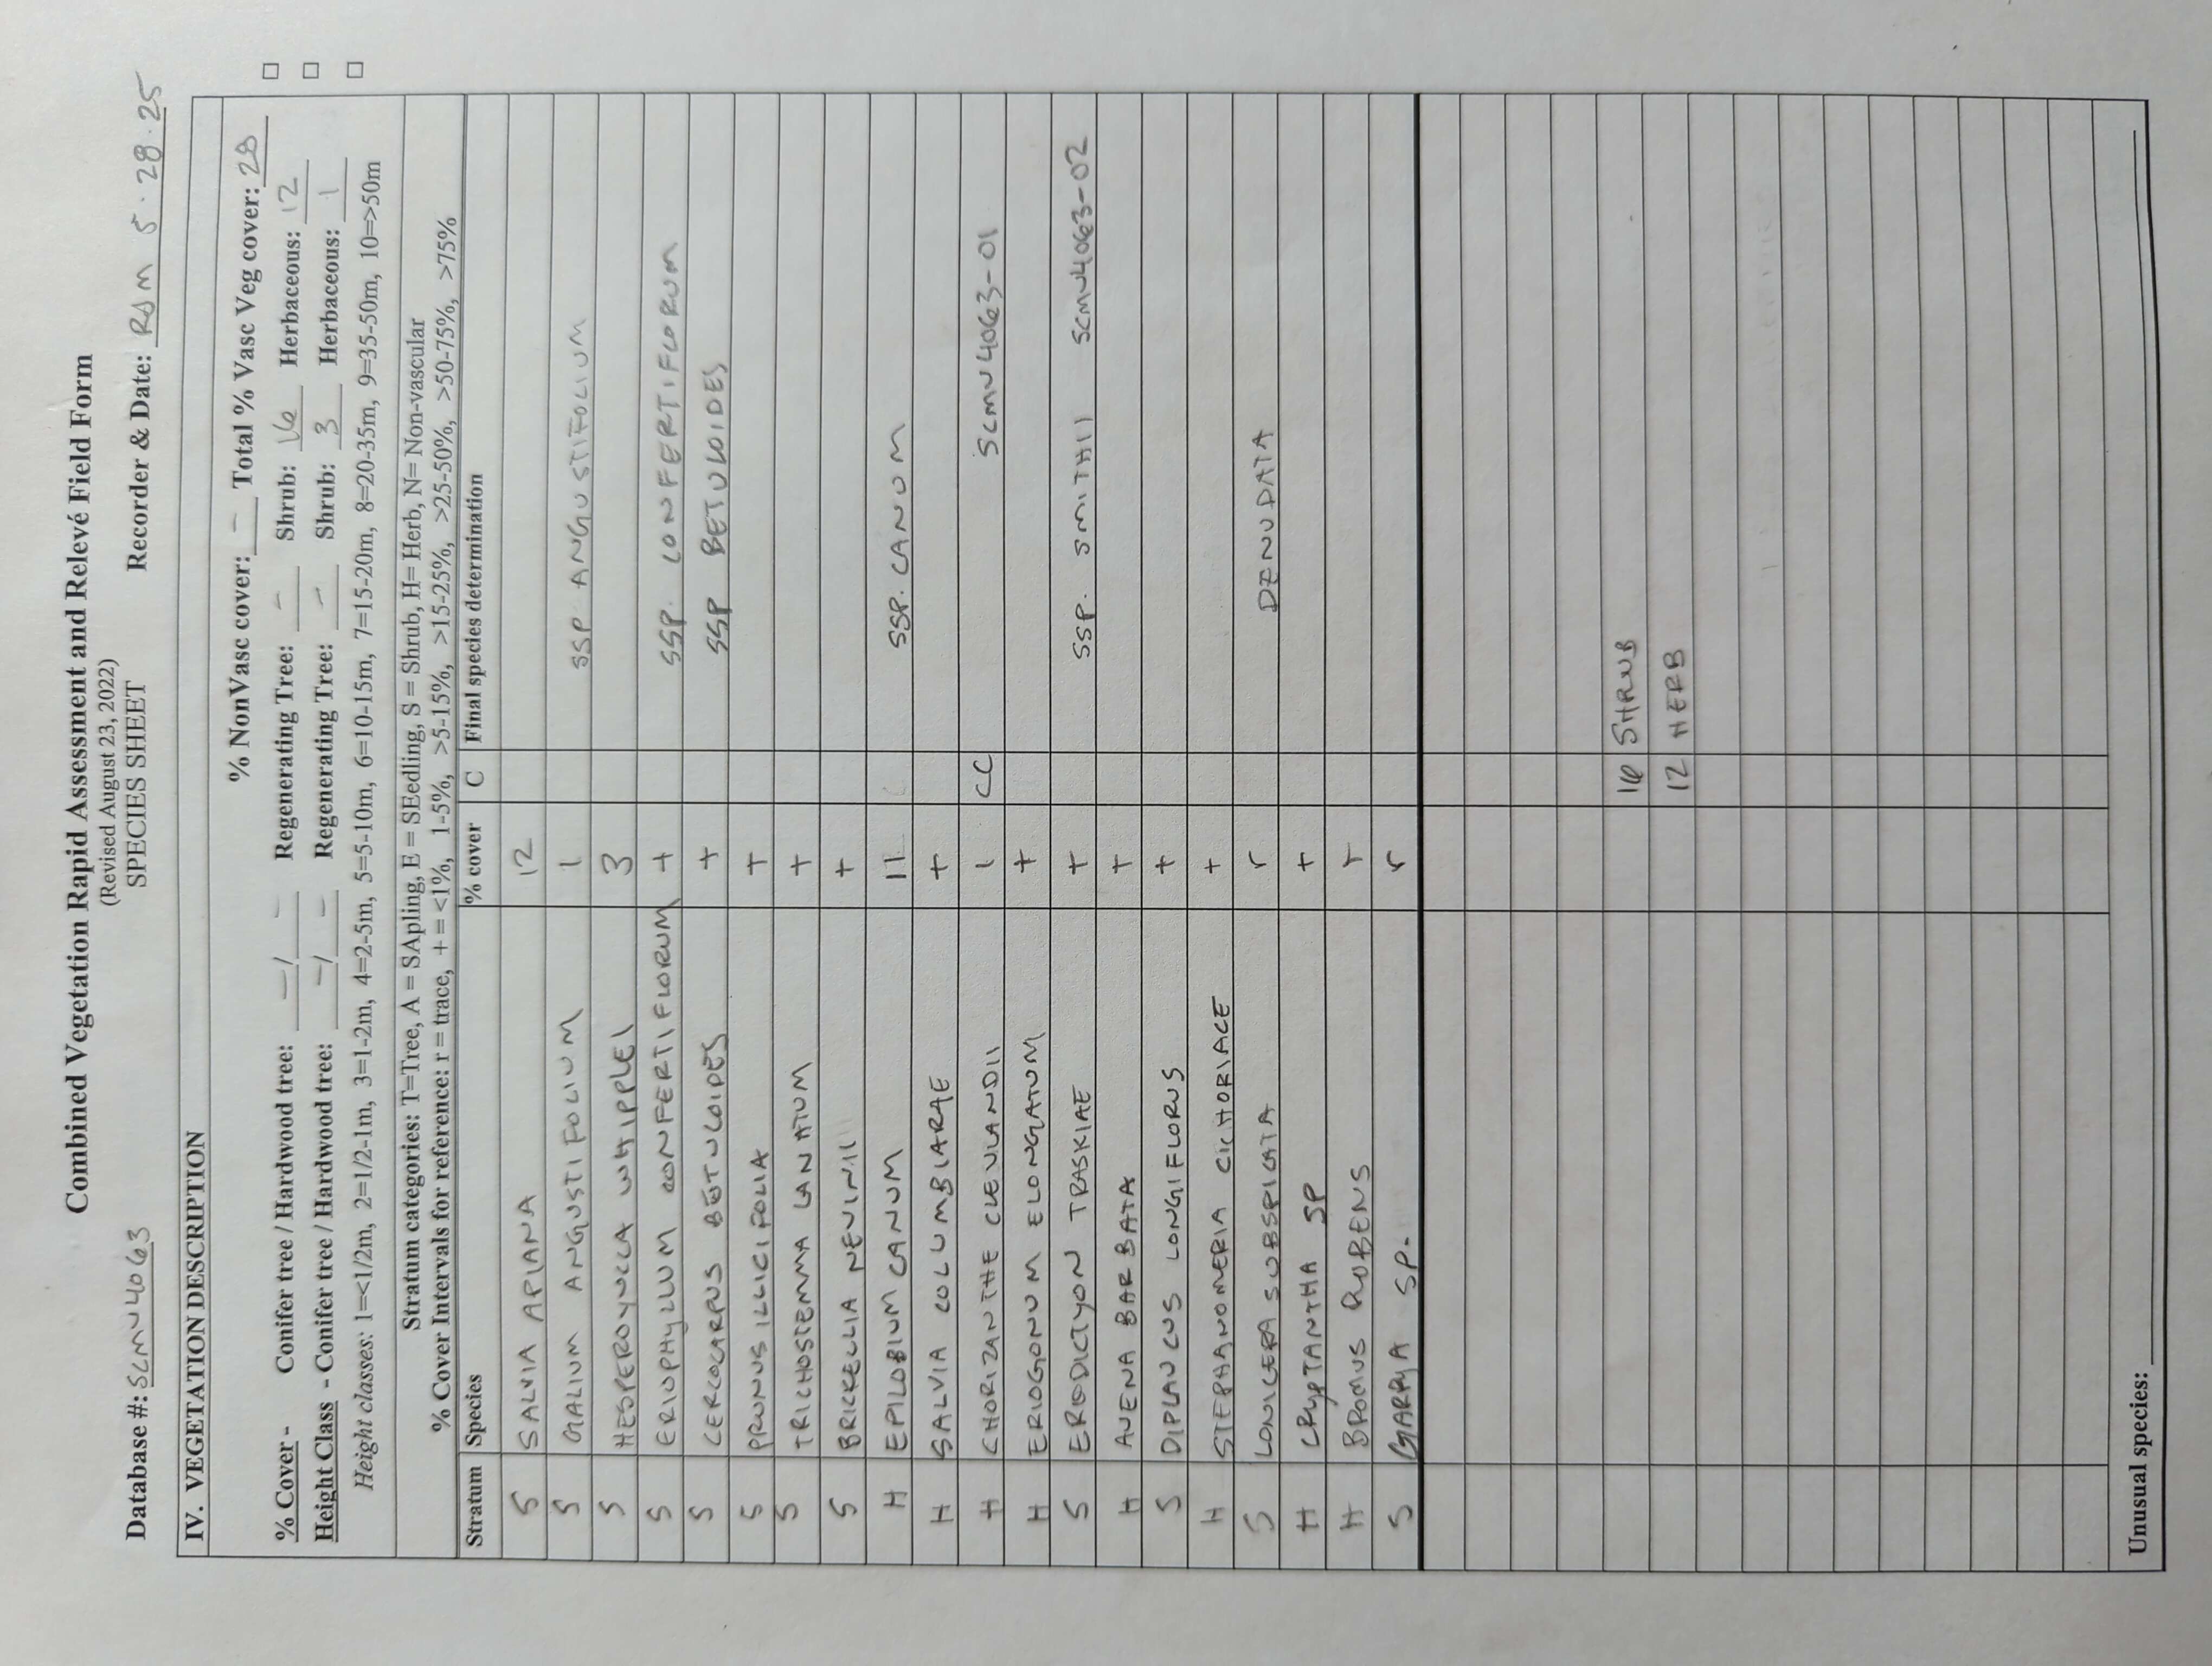 Combined Vegetation Rapid Assessment and Relevé Field Form
(Revised August 23, 2022)
SPECIES SHEET
Database #: SCMU4063 Recorder & Date: RJM 5·28·25
IV. VEGETATION DESCRIPTION
% NonVasc cover: - Total % Vasc Veg cover: 28
% Cover - Conifer tree / Hardwood tree: - / - Regenerating Tree: - Shrub: 16 Herbaceous: 12
Height Class - Conifer tree / Hardwood tree: - / - Regenerating Tree: - Shrub: 3 Herbaceous: 1
Height classes: 1=<1/2m, 2=1/2-1m, 3=1-2m, 4=2-5m, 5=5-10m, 6=10-15m, 7=15-20m, 8=20-35m, 9=35-50m, 10=>50m
Stratum categories: T=Tree, A = SApling, E = SEedling, S = Shrub, H= Herb, N= Non-vascular
% Cover Intervals for reference: r = trace, + = <1%, 1-5%, >5-15%, >15-25%, >25-50%, >50-75%, >75%
Stratum Species % cover C Final species determination
S SALVIA APIANA 12
S GALIUM ANGUSTIFOLIUM 1 SSP ANGUSTIFOLIUM
S HESPEROYUCCA WHIPPLEI 3
S ERIOPHYLLUM CONFERTIFLORUM + SSP. CONFERTIFLORUM
S CERCOCARPUS BETULOIDES + SSP BETULOIDES
S PRUNUS ILLICIFOLIA +
S TRICHOSTEMMA LANATUM +
S BRICKELLIA NEVINII +
H EPILOBIUM CANUM 11 SSP. CANUM
H SALVIA COLUMBIARAE +
H CHORIZANTHE CLEVLANDII 1 CC SCMU4063-01
H ERIOGONUM ELONGATUM +
S ERIODICTYON TRASKIAE + SSP. SMITHII SCMU4063-02
H AVENA BARBATA +
S DIPLAUCUS LONGIFLORUS +
H STEPHANOMERIA CICHORIACE +
S LONICERA SUBSPICATA r DENUDATA
H CRYPTANTHA SP +
H BROMUS RUBENS r
S GARRYA SP. r
16 SHRUB
12 HERB
Unusual species: